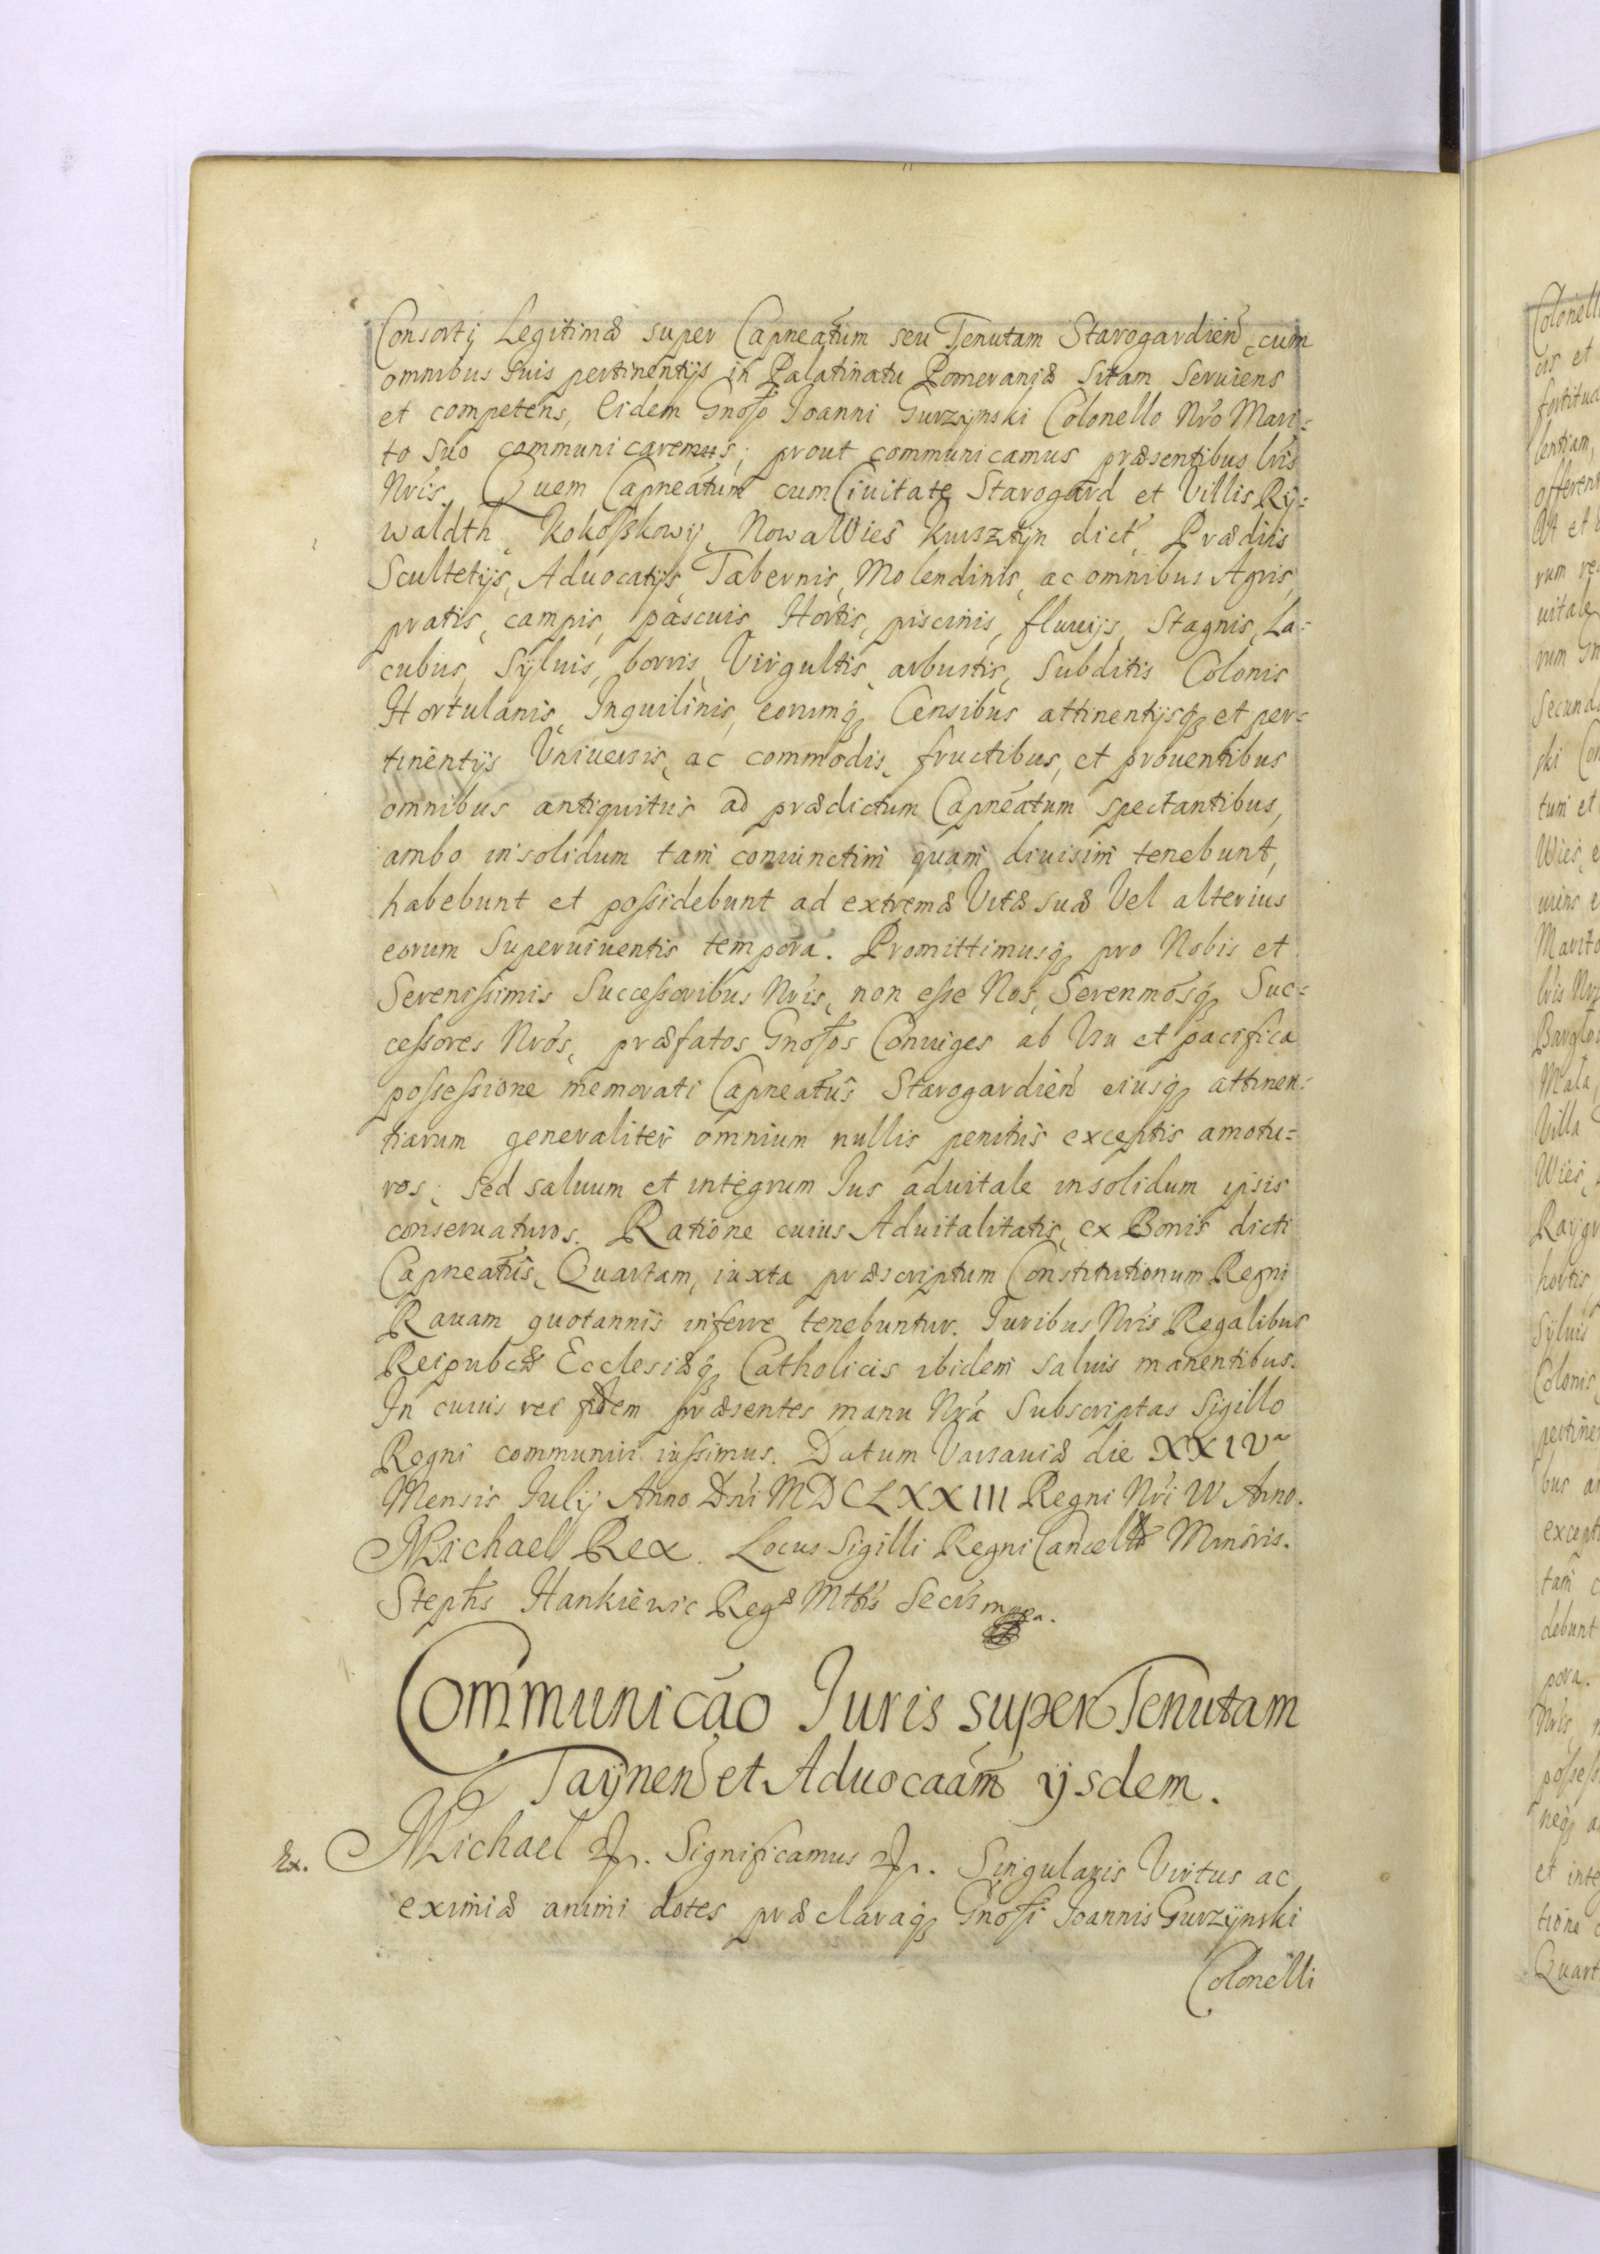 Consorti Legitimæ super Capneatum seu Tenutam Starogardien, cum
omnibus suis pertinentijs in Palatinatu Pomeraniæ sitam Seruiens
et competens, Eidem Gnoso Joanni Gurzynski Colonello Nro Mari=
to suo communicaremus; prout communicamus præsentibus lris
Nris. Quem Capneatum cum Ciuitate Starogard et Villis Ry=
waldth, Kokoßkowy, Nowa Wies Kursztyn dict, Prædiis
Scultetijs, Aduocatijs, Tabernis, Molendinis, ac omnibus Agris,
pratis, campis, pascuis Hortis, piscinis, fluuijs, Stagnis, La=
cubus, Syluis, borris, Virgultis, arbustis, Subditis Colonis
Hortulanis, Inquilinis, eorumq, Censibus attinentijsq, et per=
tinentijs Uniuersis, ac commodis, fructibus, et prouentibus
omnibus antiquitus ad prædictum Capneatum spectantibus,
ambo insolidum tam coniunctim quam diuisim tenebunt,
habebunt et possidebunt ad extrema Vitæ suæ Vel alterius
eorum Superuiuentis tempora. Promittimusq, pro Nobis et
Serenissimis Successoribus Nris, non esse Nos, Serenmosq, Suc=
cessores Nros, præfatos Gnosos Coniuges ab Usu et pacifica
possessione memorati Capneatus Starogardien eiusq, attinen=
tiarum generaliter omnium nullis penitus exceptis amotu=
ros; sed saluum et integrum Ius aduitale insolidum ipsis
conseruaturos. Ratione cuius Aduitalitatis, ex Bonis dicti
Capneatus, Quartam, iuxta præscriptum Constitutionum Regni
Rauam quotannis inferre tenebuntur. Juribus Nris Regalibus
Reipubcæ Ecclesiæq, Catholicis ibidem saluis manentibus.
In cuius rei fidem præsentes manu Nra Subscriptas Sigillo
Regni communiri iussimus. Datum Varsauiæ die XXIV
Mensis Julij Anno Dni MDCLXXIII Regni Nri IV Anno.
Michael Rex. Locus Sigilli Regni Cancellæ Minoris.
Stephs Hankiewic Regæ Mttis Secris mppa.
Communicão Juris super Tenutam
Taynen et Aduocaam ijsdem.
Ex. Michael etc. Significamus etc. Singularis Virtus ac
eximiæ animi dotes præclaraq, Gnosi Joannis Gurzynski
Colonelli